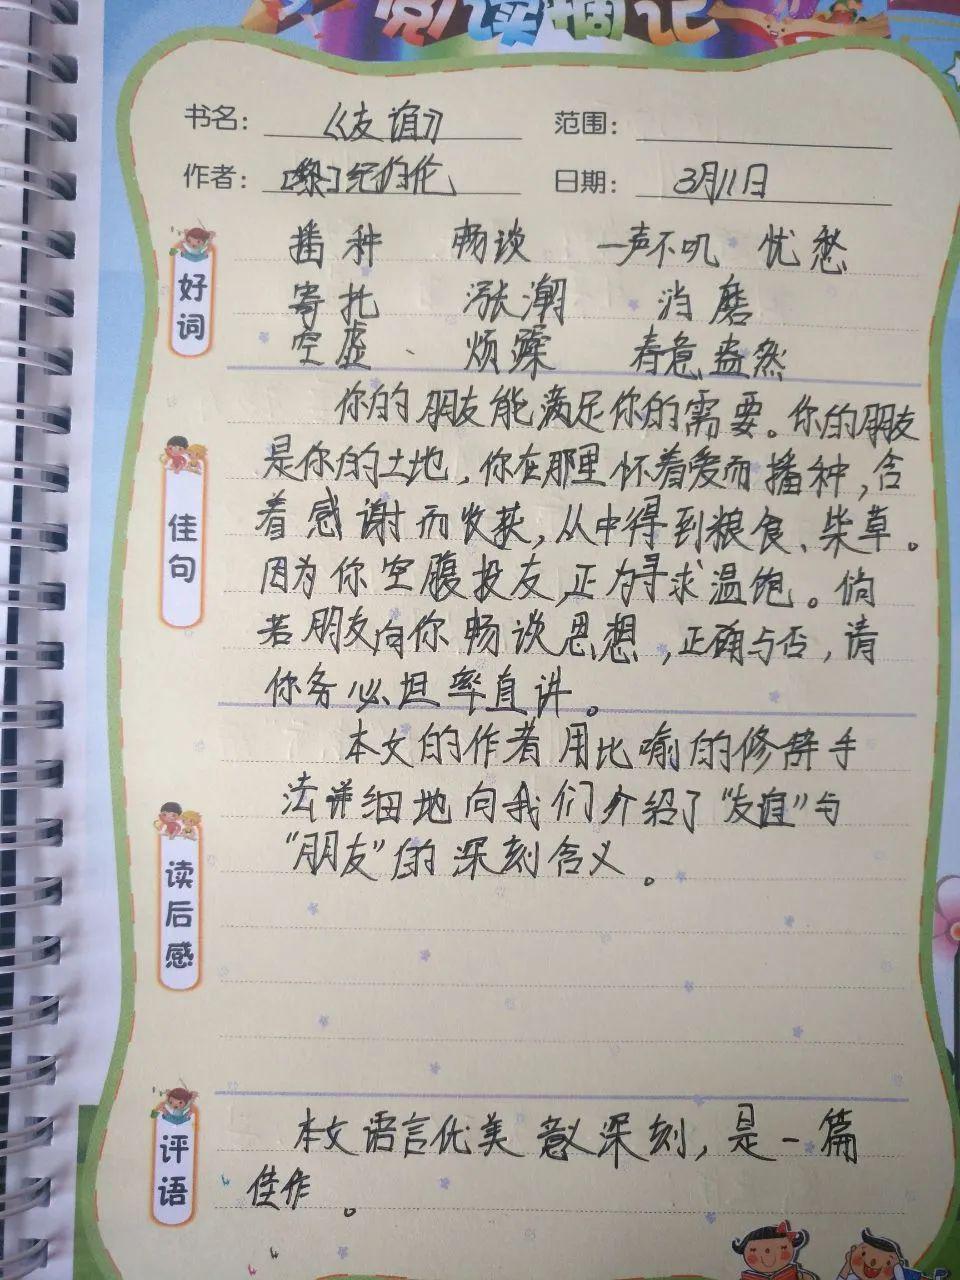 阅读摘记
书名： 《友谊》 范围：
作者： 纪伯伦 日期： 3月11日
好词
播种 畅谈 一声不叽 忧愁
寄托 涨潮 消磨
空虚 烦躁 春意盎然
佳句
你的朋友能满足你的需要。你的朋友
是你的土地，你在那里怀着爱而播种，含
着感谢而收获，从中得到粮食、柴草。
因为你空腹投友，正为寻求温饱。倘
若朋友向你畅谈思想，正确与否，请
你务必坦率直讲。
读后感
本文的作者用比喻的修辞手
法详细地向我们介绍了“友谊”与
“朋友”的深刻含义。
评语
本文语言优美意义深刻，是一篇
佳作。